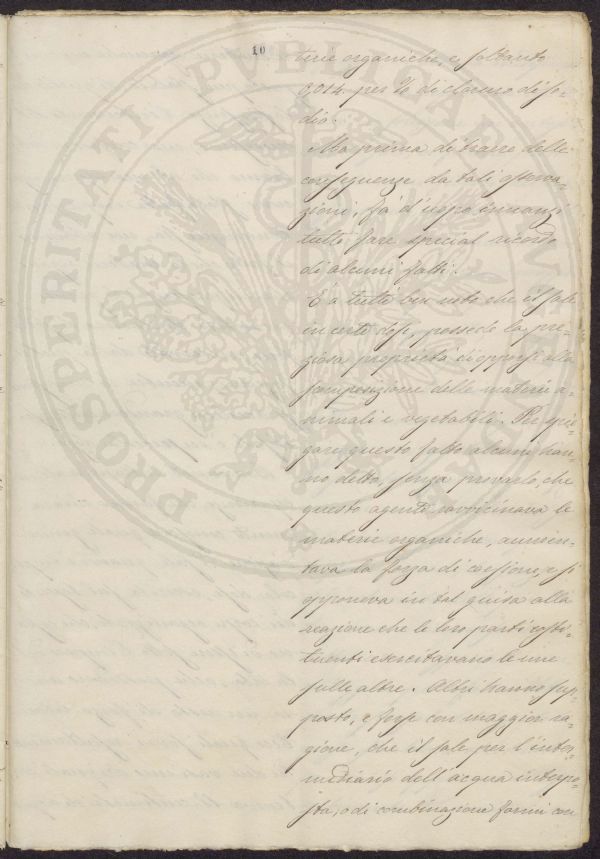 10
terie organiche, e soltanto
0,014 per % di cloruro di so-
dio.
Ma prima di trarre delle
conseguenze da tali osserva-
zioni, fa d'uopo innanzi
tutto fare special ricordo
di alcuni fatti.
È a tutti ben noto che il sale
in certe dosi, possede la pre-
ziosa proprietà di opporsi alla
scomposizione delle materie a-
nimali e vegetabili. Per spie-
gare questo fatto alcuni han-
no detto, senza provarlo, che
questo agente ravvicinava le
materie organiche, aumen-
tava la forza di coesione, e si
opponeva in tal guisa alla
reazione che le loro parti costi-
tuenti esercitavano le une
sulle altre. Altri hanno sup-
posto, e forse con maggior ra-
gione, che il sale per l'inter-
mediario dell'acqua interpo-
sta, o di combinazione formi con
PROSPERITATI PVBLICAE